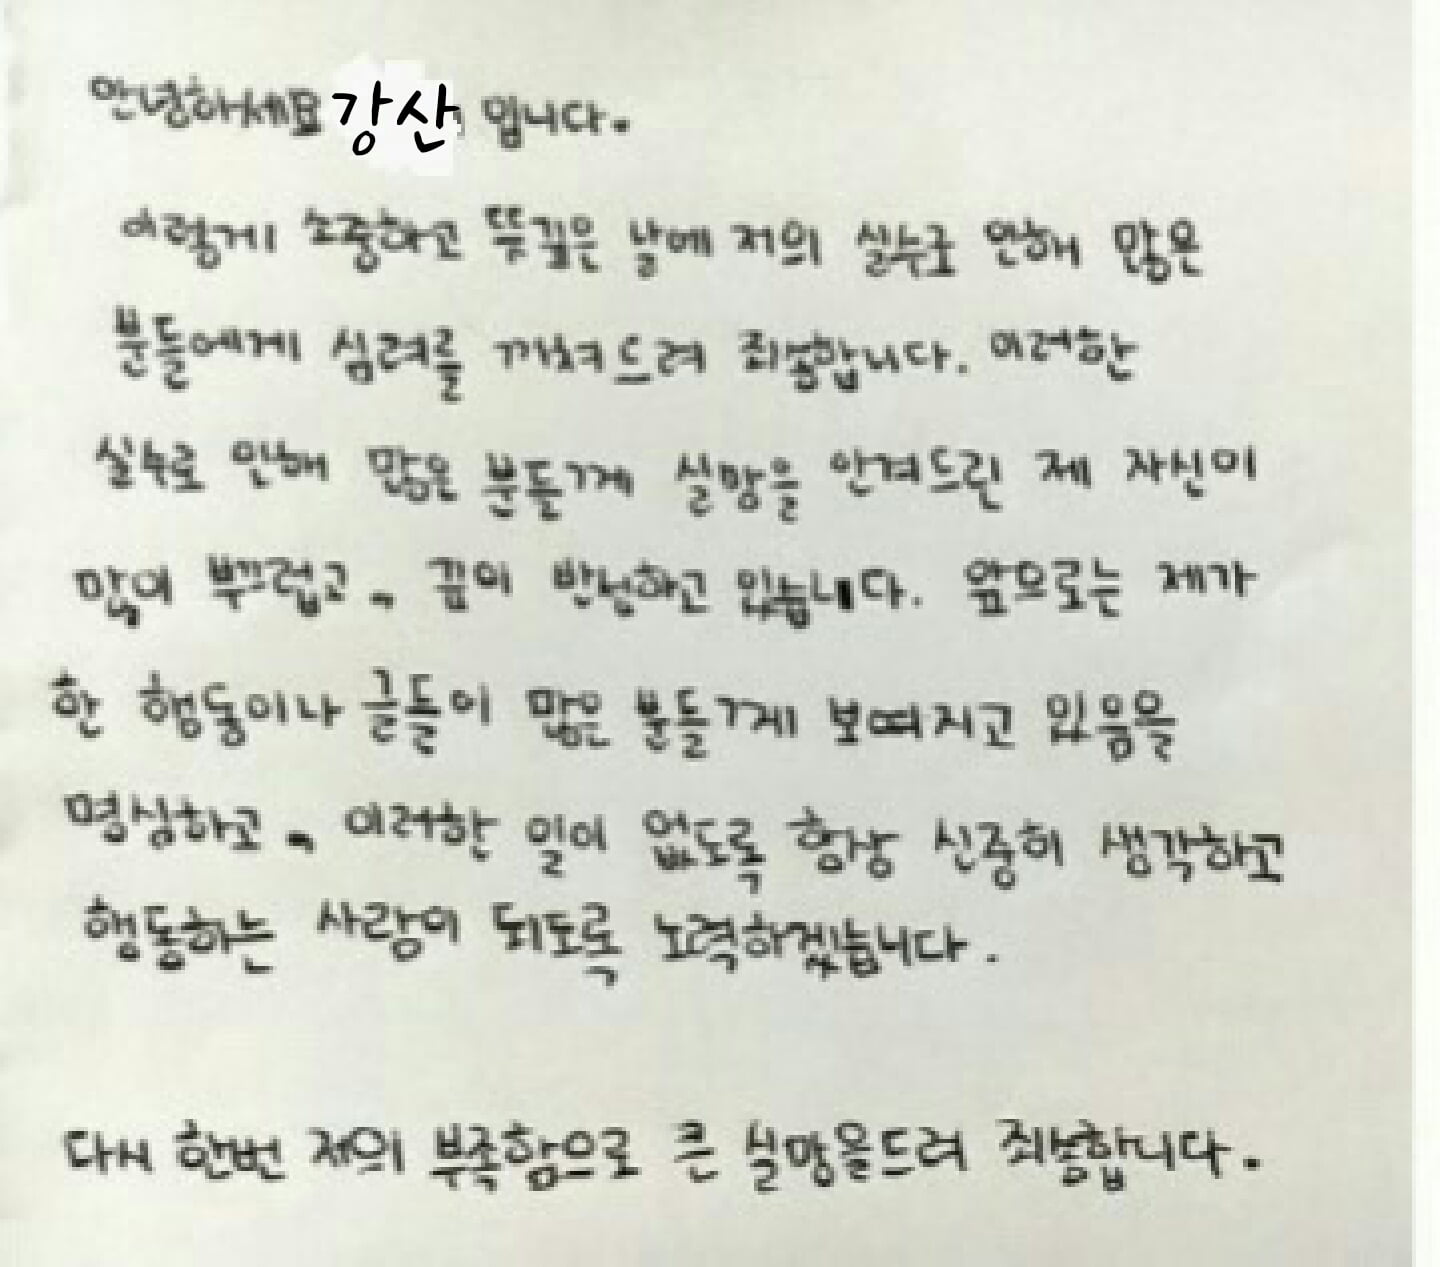 안녕하세요 강산 입니다.
이렇게 소중하고 뜻깊은 날에 저의 실수로 인해 많은
분들에게 심려를 끼쳐드려 죄송합니다. 이러한
실수로 인해 많은 분들께 실망을 안겨드린 제 자신이
많이 부끄럽고, 깊이 반성하고 있습니다. 앞으로는 제가
한 행동이나 글들이 많은 분들께 보여지고 있음을
명심하고, 이러한 일이 없도록 항상 신중히 생각하고
행동하는 사람이 되도록 노력하겠습니다.
다시 한번 저의 부족함으로 큰 실망을드려 죄송합니다.